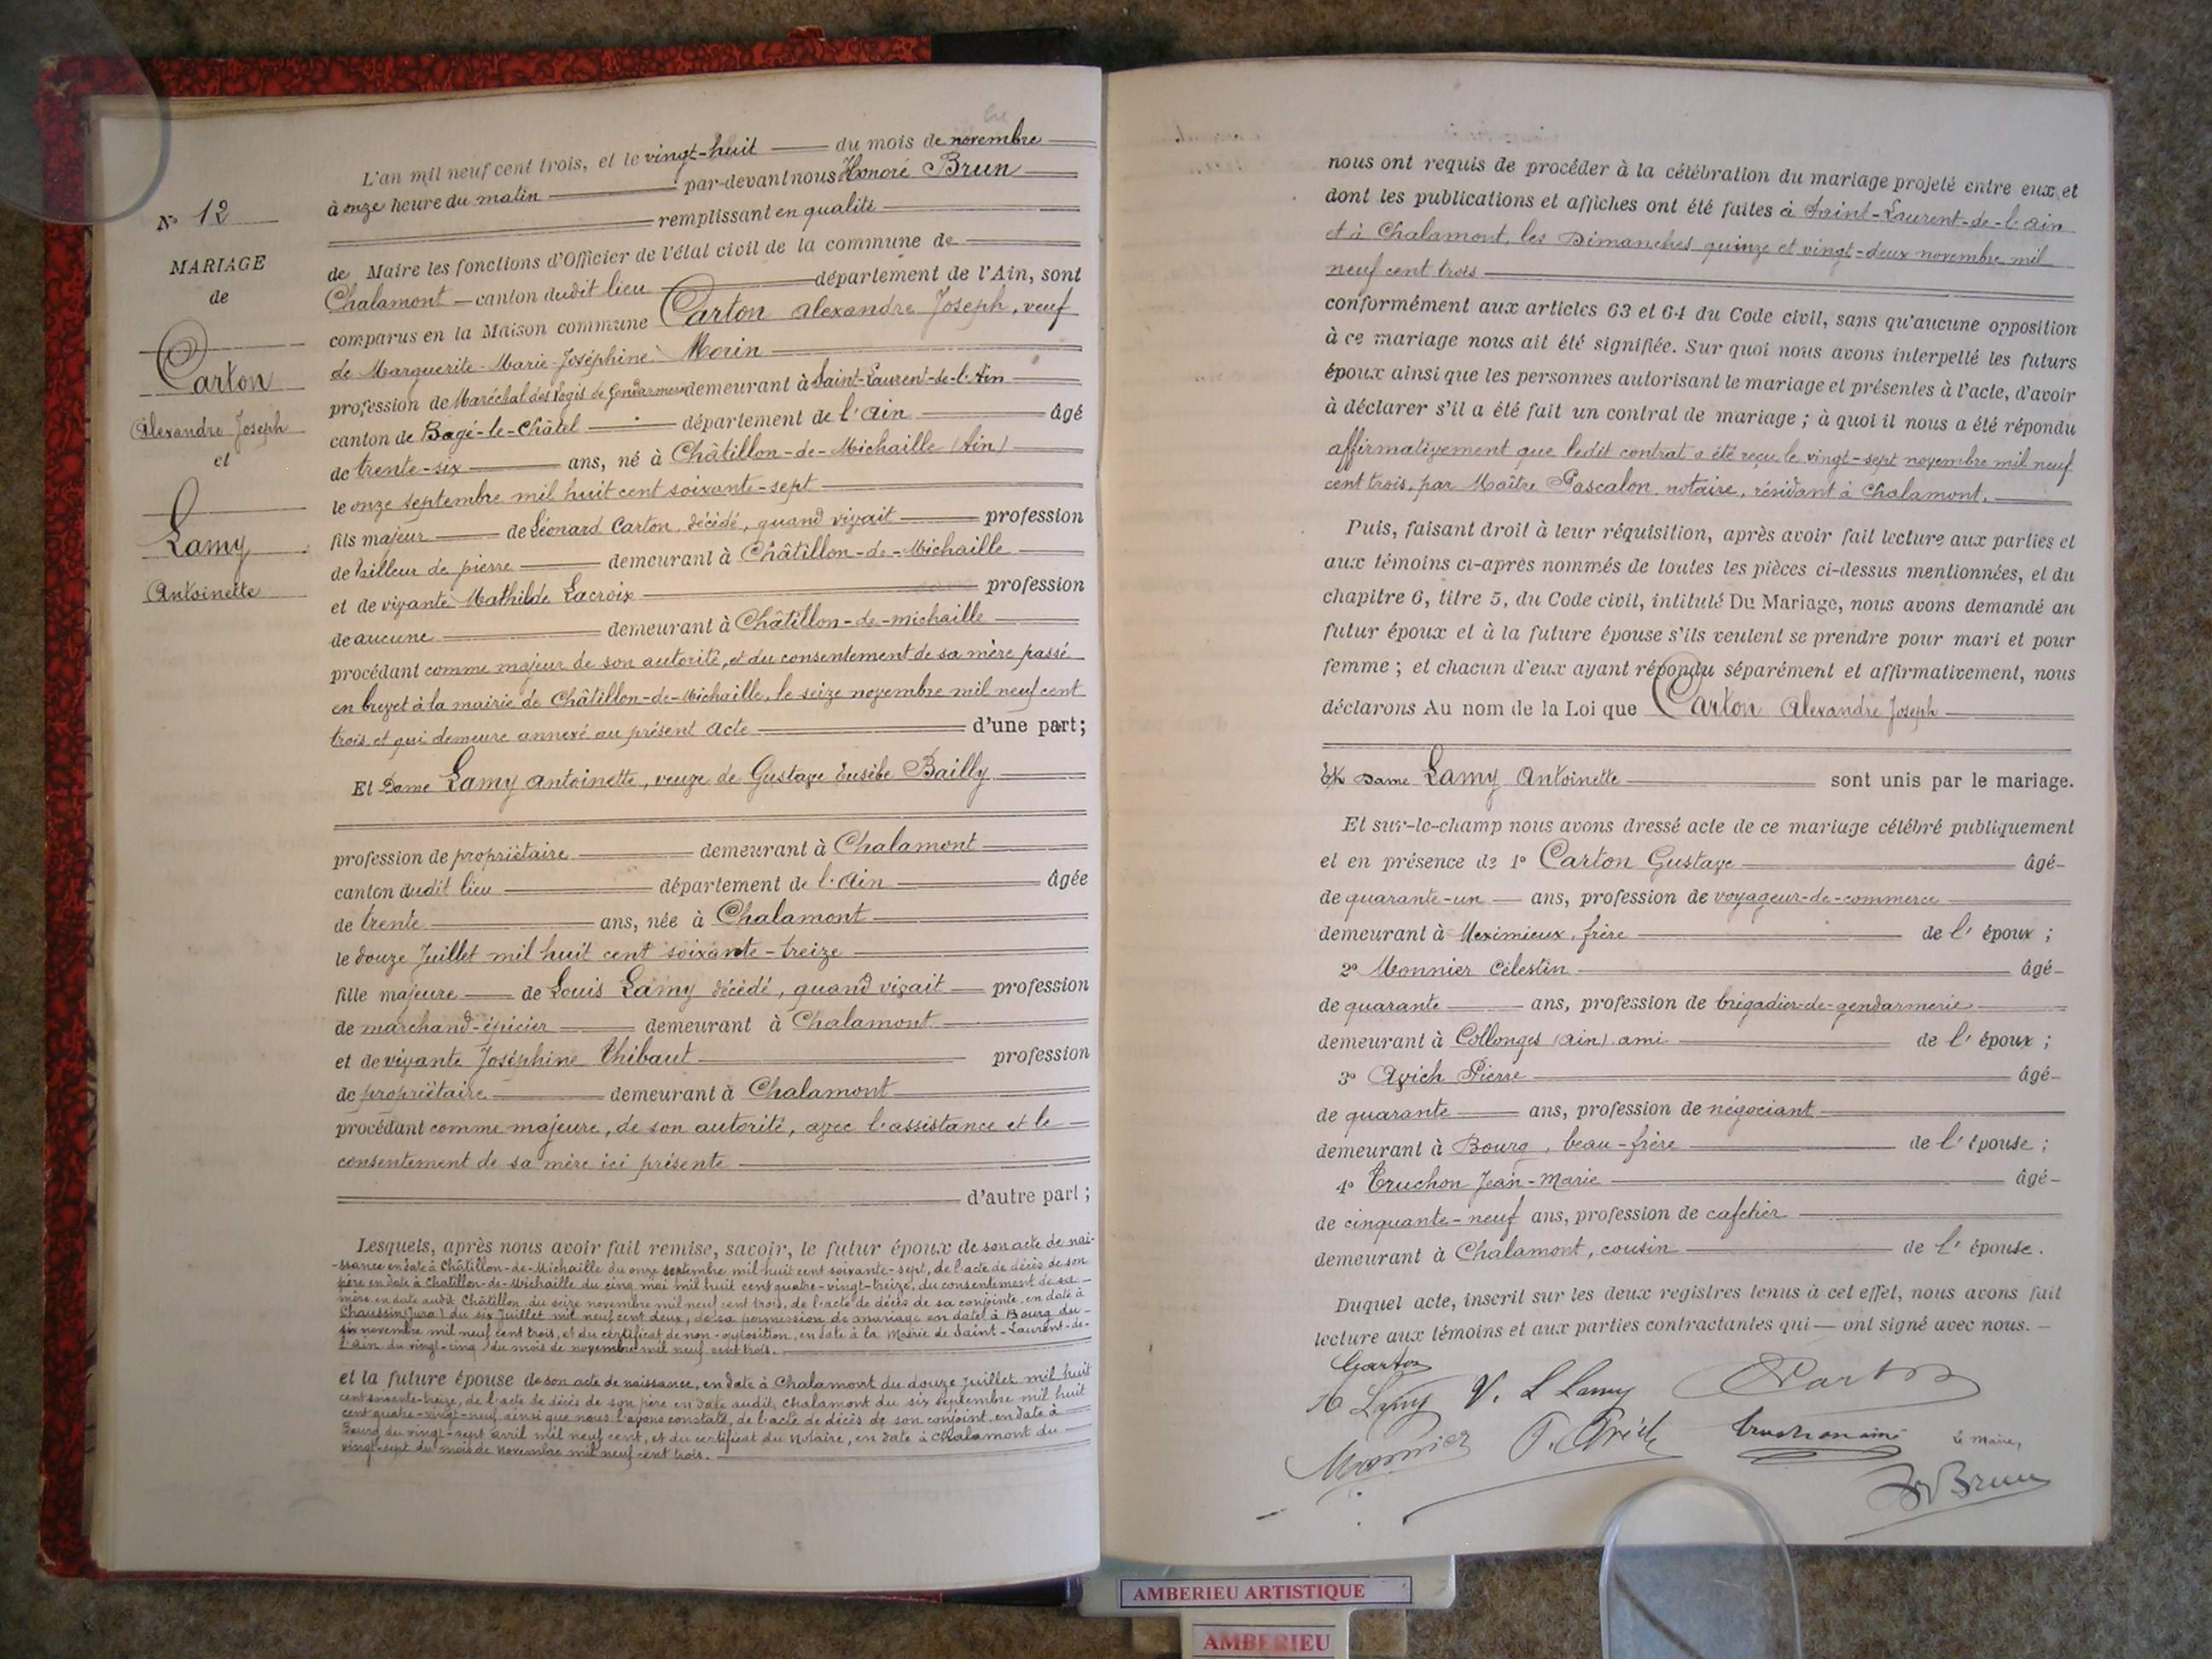 L'an mil neuf cent trois, et le vingt-huit du mois de novembre
à onze heure du matin par-devant nous Honoré Brun
remplissant en qualité
de Maire les fonctions d'Officier de l'état civil de la commune de
Chalamont canton dudit lieu département de l'Ain, sont
comparus en la Maison commune Carton Alexandre Joseph, veuf
de Marguerite-Marie-Joséphine Morin
profession de Maréchal des Logis de Gendarmerie demeurant à Saint-Laurent-de-l'Ain
canton de Bagé-le-Châtel département de l'Ain âgé
de trente-six ans, né à Châtillon-de-Michaille (Ain)
le onze septembre mil huit cent soixante-sept
fils majeur de Léonard Carton décédé, quand vivait profession
de tailleur de pierre demeurant à Châtillon-de-Michaille
et de vivante Mathilde Lacroix profession
de aucune demeurant à Châtillon-de-michaille
procédant comme majeur de son autorité, et du consentement de sa mère passé
en brevet à la mairie de Châtillon-de-Michaille, le seize novembre mil neuf cent
trois et qui demeure annexé au présent acte d'une part;
Et Dame Lamy Antoinette, veuve de Gustave Eusèbe Bailly
profession de propriétaire demeurant à Chalamont
canton dudit lieu département de l'Ain âgée
de trente ans, née à Chalamont
le douze Juillet mil huit cent soixante-treize
fille majeure de Louis Lamy décédé, quand vivait profession
de marchand-épicier demeurant à Chalamont
et de vivante Joséphine Thibaut profession
de propriétaire demeurant à Chalamont
procédant comme majeure, de son autorité, avec l'assistance et le
consentement de sa mère ici présente
d'autre part;
Lesquels, après nous avoir fait remise, savoir, le futur époux de son acte de nai-
-ssance en date à Châtillon-de-Michaille du onze septembre mil huit cent soixante-sept, de l'acte de décès de son
père en date à Chatillon-de-Michaille du cinq mai mil huit cent quatre-vingt-treize, du consentement de sa
mère en date audit Châtillon du seize novembre mil neuf cent trois, de l'acte de décès de sa conjointe, en date à
Chaussin (Jura) du six Juillet mil neuf cent deux, de sa permission de mariage en date à Bourg du
six novembre mil neuf cent trois, et du certificat de non-opposition, en date à la Mairie de Saint-Laurent-de-
l'Ain du vingt-cinq du mois de novembre mil neuf cent trois.
et la future épouse de son acte de naissance, en date à Chalamont du douze juillet mil huit
cent soixante-treize, de l'acte de décès de son père en date audit Chalamont du six septembre mil huit
cent quatre-vingt-neuf ainsi que nous l'avons constaté, de l'acte de décès de son conjoint, en date à
Bourg du vingt-sept avril mil neuf cent, et du certificat du Notaire, en date à Chalamont du
vingt-sept du mois de Novembre mil neuf cent trois.
N° 12
MARIAGE
de
Carton
Alexandre Joseph
et
Lamy
Antoinette
nous ont requis de procéder à la célébration du mariage projeté entre eux, et
dont les publications et affiches ont été faites à Saint-Laurent-de-l'Ain
et à Chalamont, les Dimanches quinze et vingt-deux novembre mil
neuf cent trois
conformément aux articles 63 et 64 du Code civil, sans qu'aucune opposition
à ce mariage nous ait été signifiée. Sur quoi nous avons interpellé les futurs
époux ainsi que les personnes autorisant le mariage et présentes à l'acte, d'avoir
à déclarer s'il a été fait un contrat de mariage ; à quoi il nous a été répondu
affirmativement que ledit contrat a été reçu le vingt-sept novembre mil neuf
cent trois, par Maître Pascalon, notaire, résidant à Chalamont.
Puis, faisant droit à leur réquisition, après avoir fait lecture aux parties et
aux témoins ci-après nommés de toutes les pièces ci-dessus mentionnées, et du
chapitre 6, titre 5, du Code civil, intitulé Du Mariage, nous avons demandé au
futur époux et à la future épouse s'ils veulent se prendre pour mari et pour
femme ; et chacun d'eux ayant répondu séparément et affirmativement, nous
déclarons Au nom de la Loi que Carton Alexandre Joseph
Et Dame Lamy Antoinette sont unis par le mariage.
Et sur-le-champ nous avons dressé acte de ce mariage célébré publiquement
et en présence de 1° Carton Gustave âgé
de quarante-un ans, profession de voyageur-de-commerce
demeurant à Meximieux, frère de l'époux ;
2° Monnier Célestin âgé
de quarante ans, profession de brigadier-de-gendarmerie
demeurant à Collonges (Ain) ami de l'époux ;
3° Avich Pierre âgé
de quarante ans, profession de négociant
demeurant à Bourg, beau-frère de l'épouse ;
4° Truchon Jean-Marie âgé
de cinquante-neuf ans, profession de cafetier
demeurant à Chalamont, cousin de l'épouse.
Duquel acte, inscrit sur les deux registres tenus à cet effet, nous avons fait
lecture aux témoins et aux parties contractantes qui ont signé avec nous.
Carton
A Lamy V. L Lamy Carton
Monnier P. Truchon ainé Le Maire,
Brun
AMBERIEU ARTISTIQUE
AMBERIEU